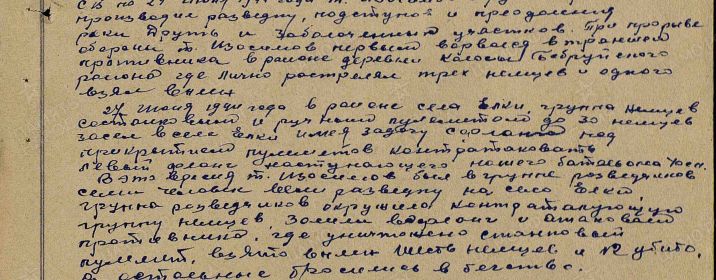 производил разведку, подступов и преодоления
реки Друть и заболоченных участков. При прорыве
обороны т. Изосимов первый ворвался в траншеи
противника в районе деревни Колосы Бобруйского
района где лично растрелял трех немцев и одного
взял в плен
27 июня 1944 года в районе села Елки, группа немцев
со станковым и ручным пулеметом до 30 немцев
засел в селе Елки имея задачу под
прикрытием пулеметов контратаковать
левый фланг наступающего нашего батальона
В это время т. Изосимов был в группе разведчиков
семи человек вели разведку на село Елки
группа разведчиков окружила контратакующую
группу немцев зашли во фланг и атаковали
противника, где уничтожено станковый
пулемет, взято в плен шесть немцев и 12 убито,
а остальные бросились в бегство.